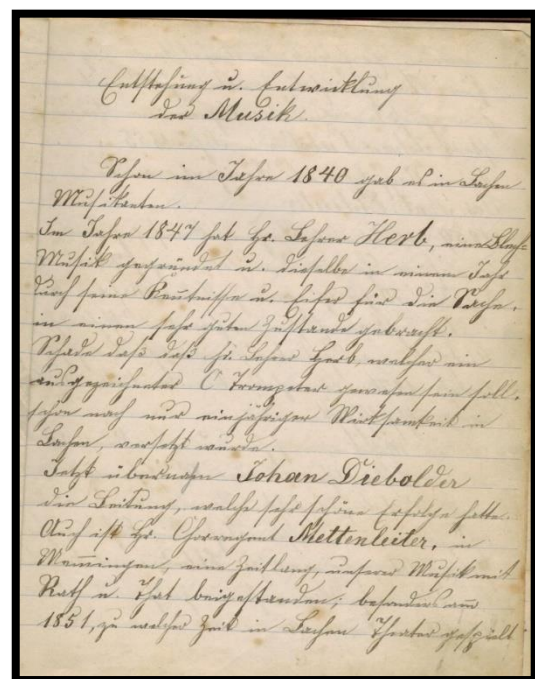 Entstehung u. Entwicklung
der Musik.
Schon im Jahre 1840 gab es in Lachen
Musikanten.
Im Jahre 1847 hat Hr. Lehrer Herb, eine Blech-
Musik gegründet u. dieselbe in einem Jahr
durch seine Kenntnisse u. Eifer für die Sache,
in einen sehr guten Zustande gebracht.
Schade daß daß Hr. Lehrer Herb, welcher ein
ausgezeichneter C Trompeter gewesen sein soll,
schon nach nur einjähriger Wirksamkeit in
Lachen, versetzt wurde.
Jetzt übernahm Johan Diebolder
die Leitung, welche sehr schöne Erfolge hatte.
Auch ist Hr. Chorregent Mettenleiter, in
Memmingen, eine Zeitlang, unserer Musik mit
Rath u. That beigestanden; besonders anno
1851, zu welcher Zeit in Lachen Theater gespielt